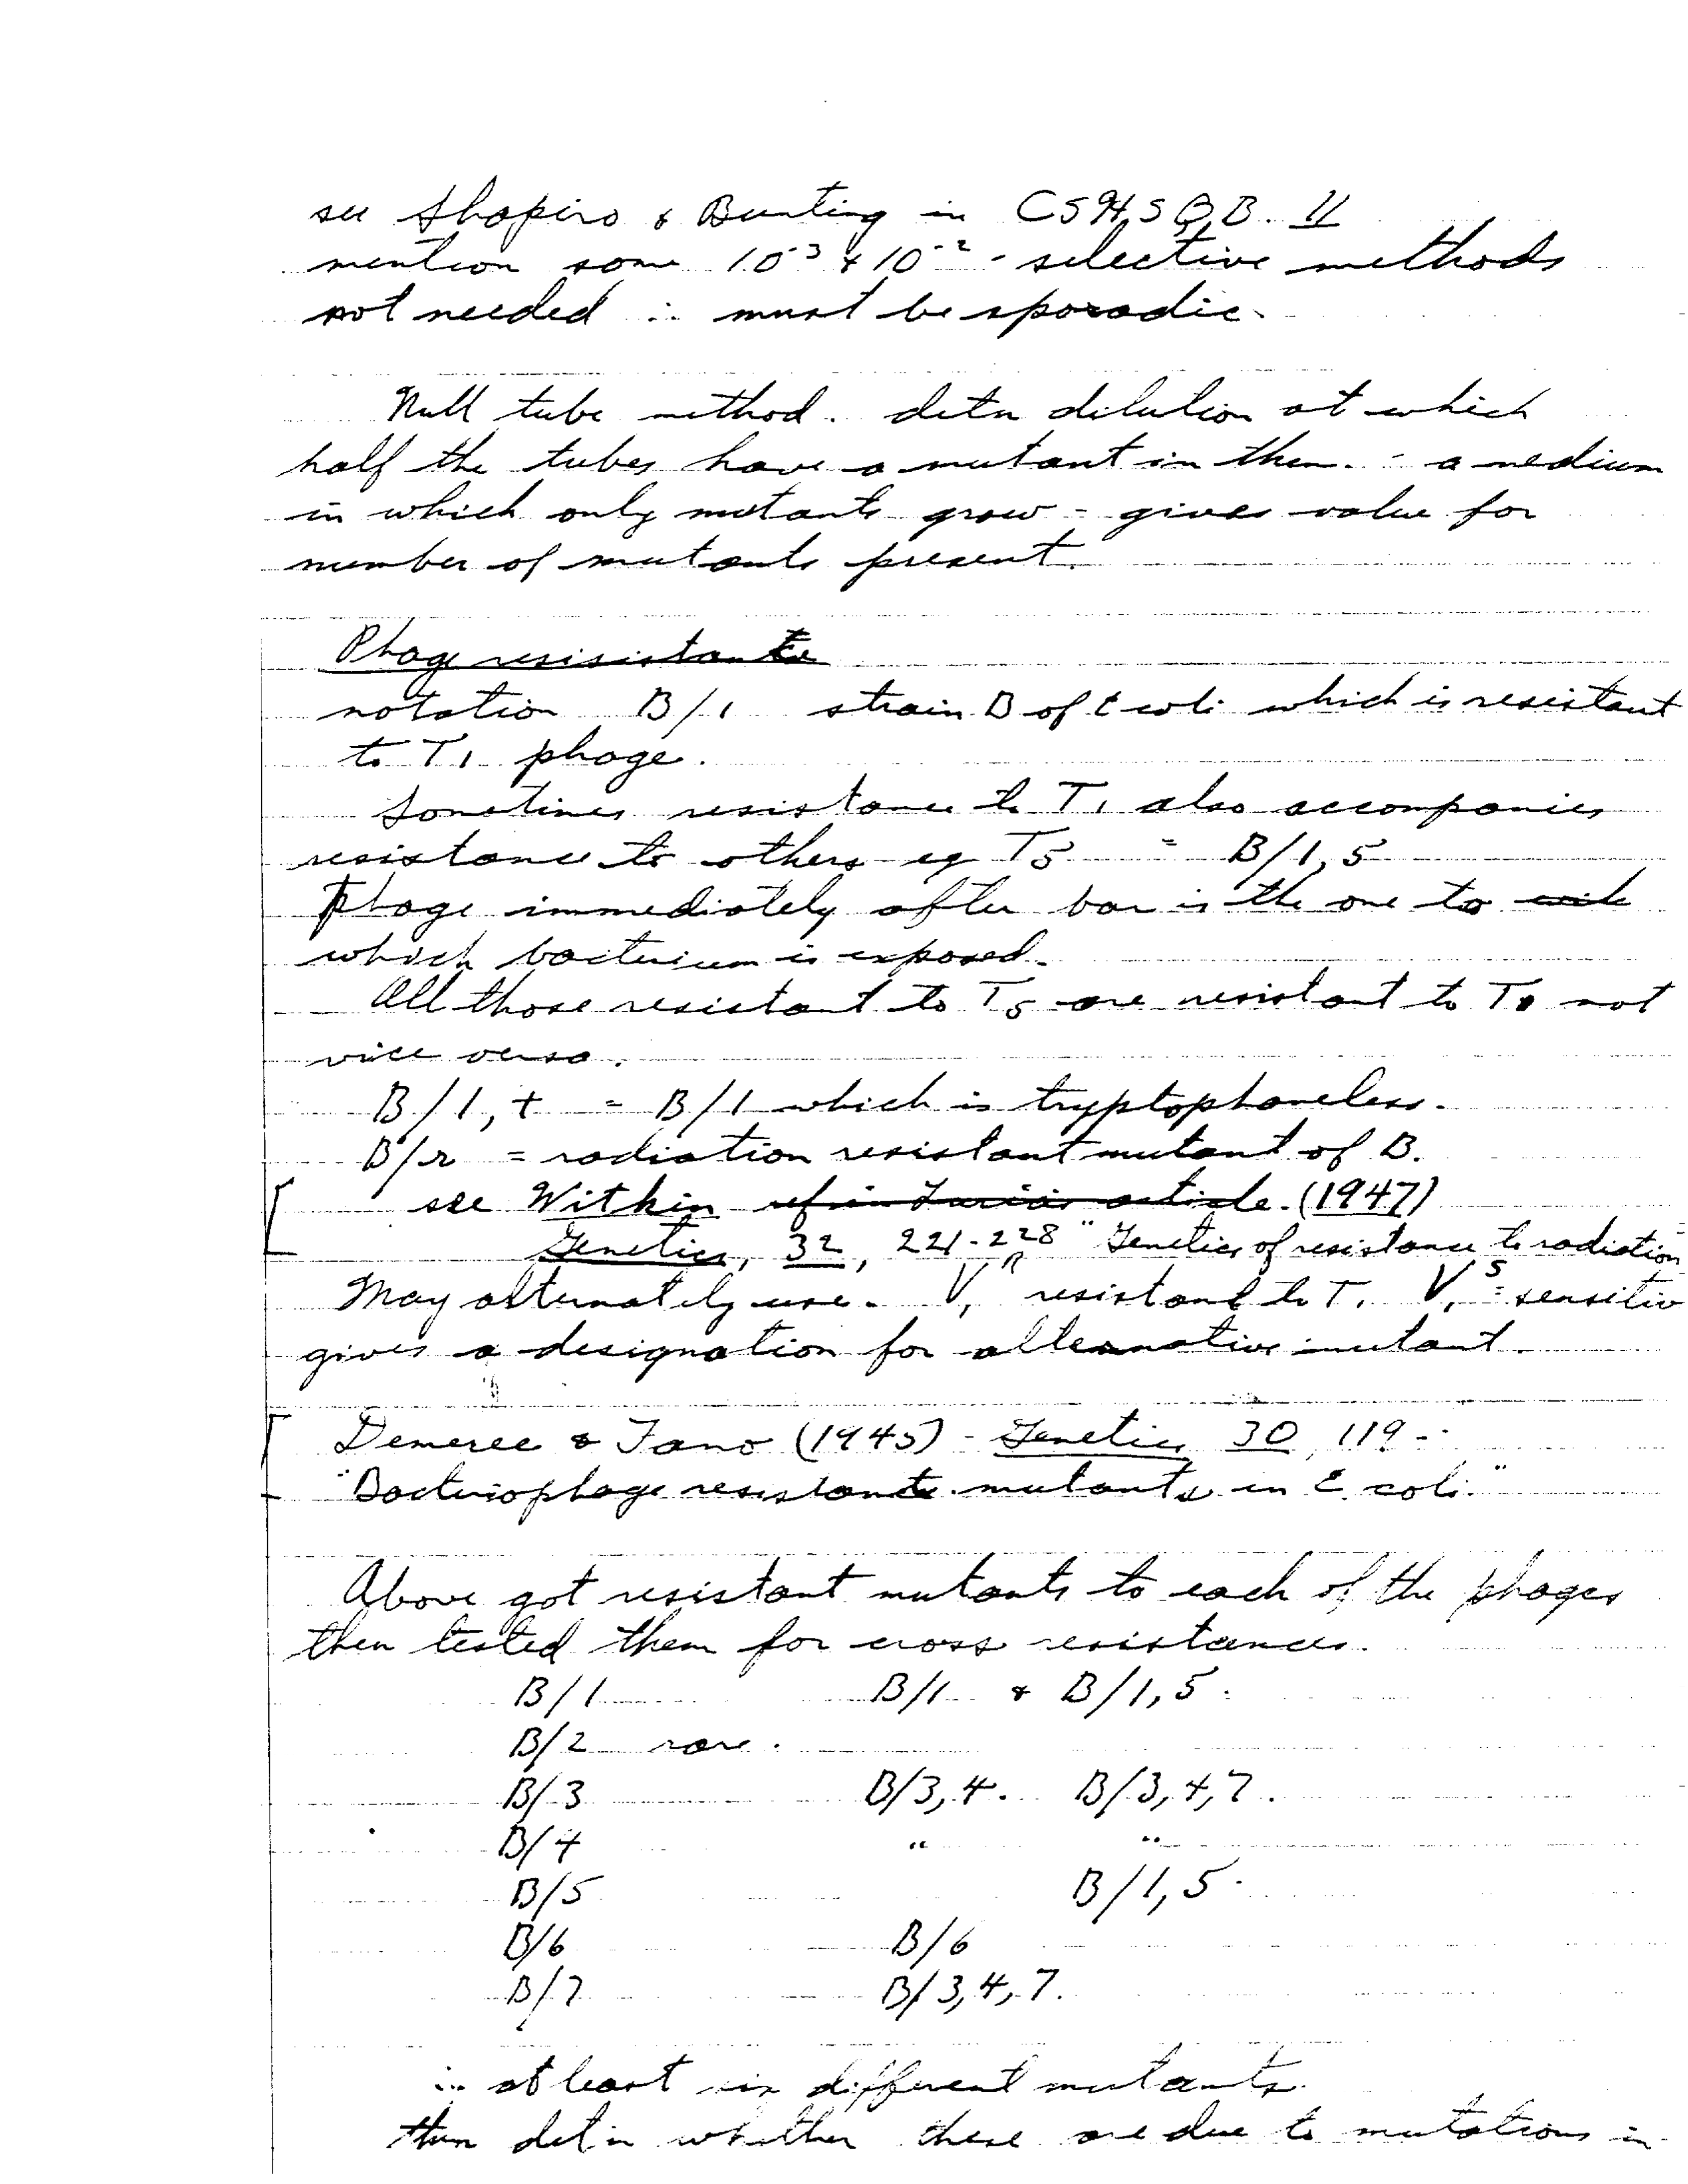 see Shapiro & Bunting in CSH,SQ,B. 11
mention some 10⁻³ & 10⁻² - selective methods
not needed ∴ must be sporadic.
Null tube method. detn dilution at which
half the tubes have a mutant in them. - a medium
in which only mutants grow - gives value for
number of mutants present.
Phage resisistante
notation B/1 strain B of E coli which is resistant
to T1 phage.
Sometimes resistance to T1 also accompanies
resistance to others eg T5 = B/1,5
Phage immediately after bar is the one to
which bacterium is exposed.
All those resistant to T5 are resistant to T1 not
vice versa.
B/1,t = B/1 which is tryptophaneless.
B/r = radiation resistant mutant of B.
see Witkin ref in Luria's article. (1947)
Genetics, 32, 221-228 "Genetics of resistance to radiation
May alternately use. V₁ᴿ resistant to T1 V₁ˢ = sensitiv
gives a designation for alternative mutant.
Demerec & Fano (1945) - Genetics 30, 119 --
"Bacteriophage resistante mutants in E. coli."
Above got resistant mutants to each of the phages
then tested them for cross resistances.
B/1 B/1 & B/1,5.
B/2 rare.
B/3 B/3,4. B/3,4,7.
B/4 " "
B/5 B/1,5.
B/6 B/6
B/7 B/3,4,7.
∴ at least six different mutants.
then detn whether these are due to mutations in